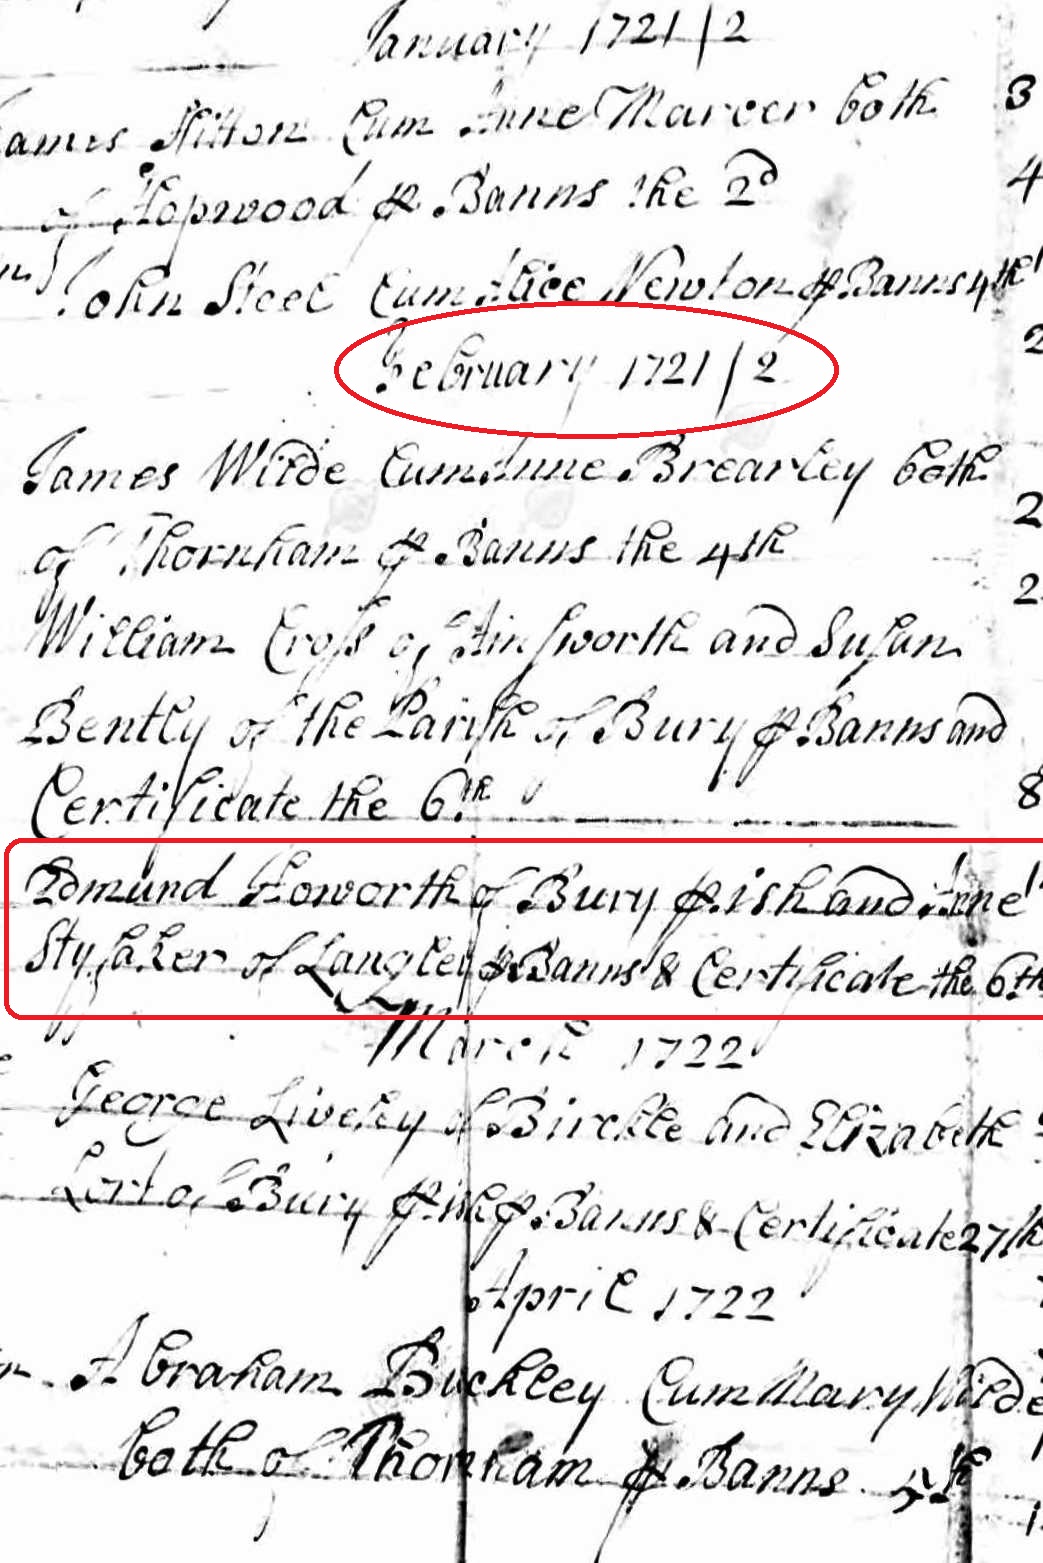 January 1721/2
James Hilton Cum Anne Marcer both 3
of Hopwood p Banns the 2d 4
John Steel Cum Alice Newton p Banns 4th
February 1721/2 2
James Wilde Cum Anne Brearley both
of Thornham p Banns the 4th 2
2
William Croſs of Ainſworth and Suſan
Bently of the Pariſh of Bury p Banns and
Certificate the 6th 8
Edmund Howorth of Bury p.ish and Anne
of Langley p Banns & Certificate the 6th
March 1722
George Liveſey of Birckle and Elizabeth
Lort of Bury p.ish p Banns & Certificate 27th
April 1722
Abraham Buckley Cum Mary Wilde
both of Thornham p Banns 5th